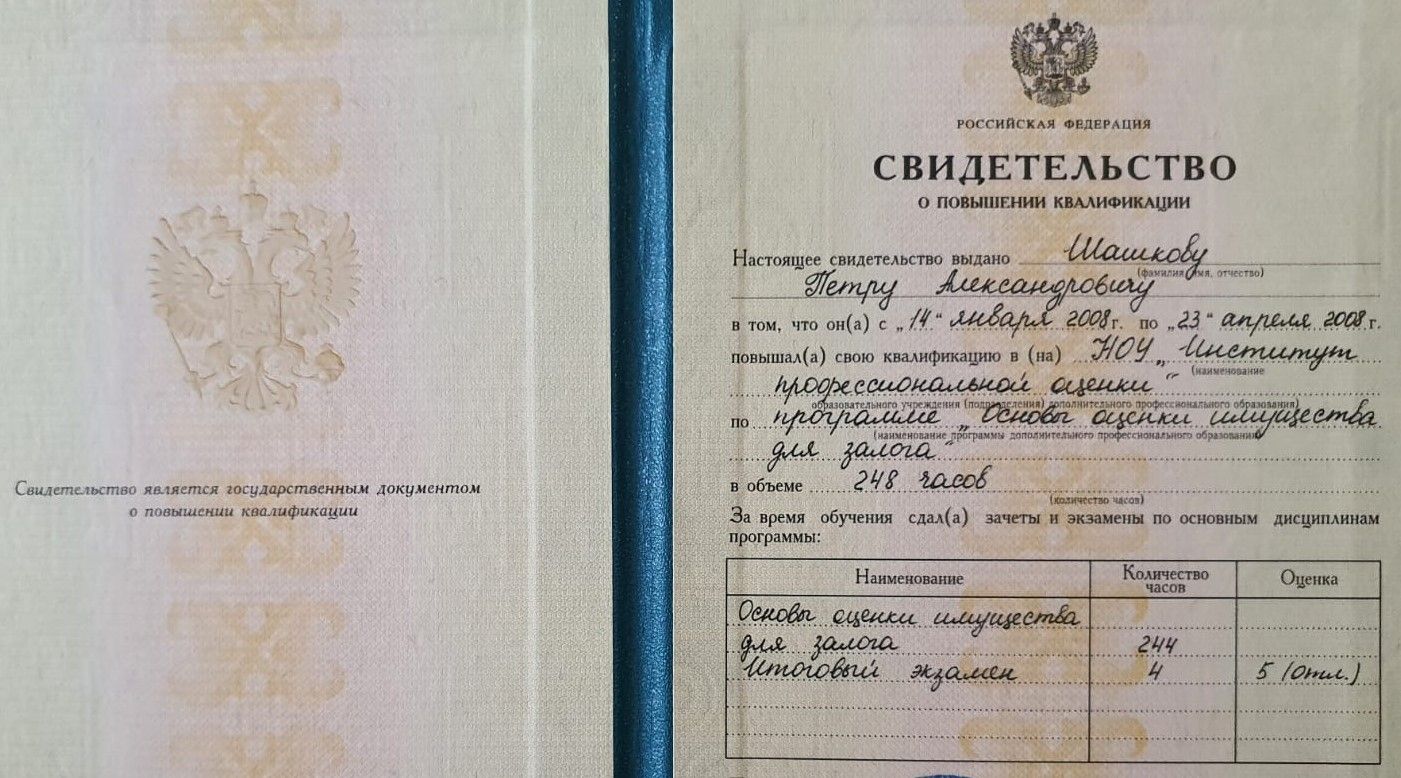 Свидетельство является государственным документом
о повышении квалификации
РОССИЙСКАЯ ФЕДЕРАЦИЯ
СВИДЕТЕЛЬСТВО
О ПОВЫШЕНИИ КВАЛИФИКАЦИИ
Настоящее свидетельство выдано Шашкову
(фамилия, имя, отчество)
Петру Александровичу
в том, что он(а) с „14“ января 2008 г. по „23“ апреля 2008 г.
повышал(а) свою квалификацию в (на) НОУ „Институт
(наименование
профессиональной оценки“
образовательного учреждения (подразделения) дополнительного профессионального образования)
по программе „Основы оценки имущества
(наименование программы дополнительного профессионального образования)
для залога“
в объеме 248 часов
(количество часов)
За время обучения сдал(а) зачеты и экзамены по основным дисциплинам
программы:
Наименование Количество часов Оценка
Основы оценки имущества
для залога 244
Итоговый экзамен 4 5 (отл.)